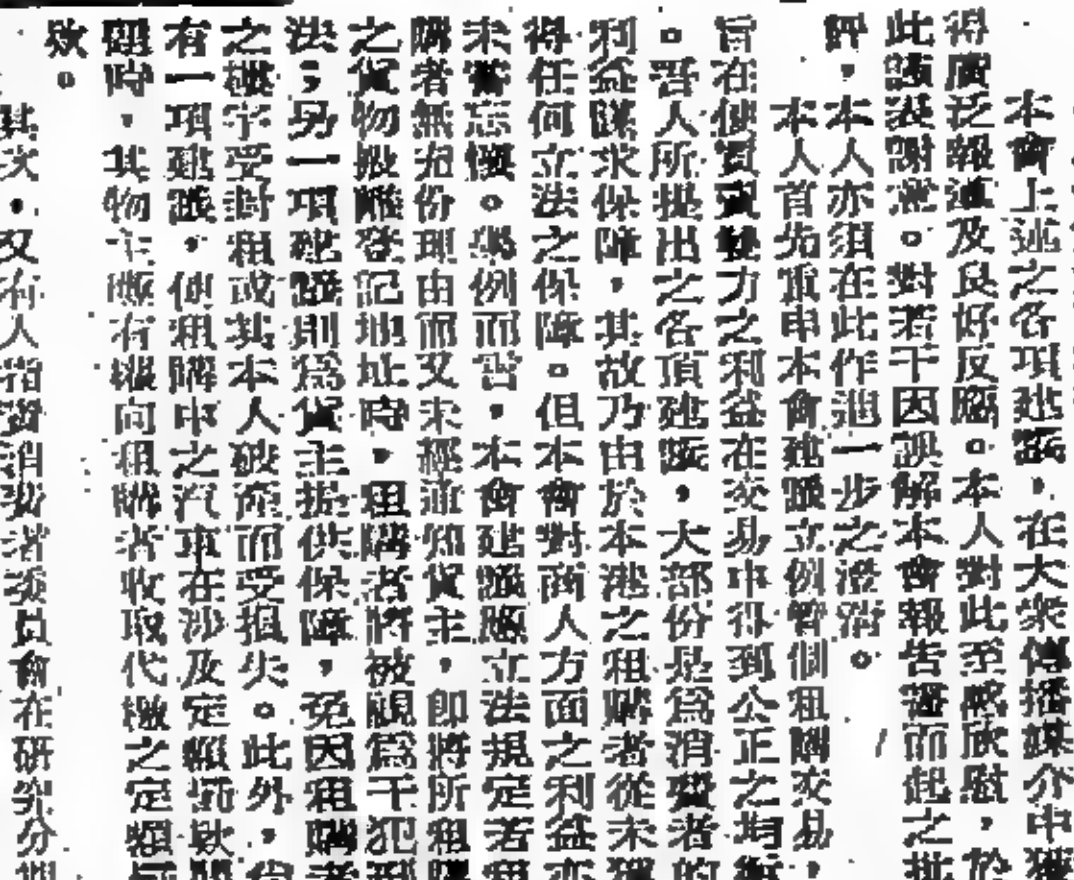 本會上述之各項建議，在大衆傳播媒介中獲
得廣泛報道及良好反應。本人對此至感欣慰，於
此謹表謝意。對若干因誤解本會報告書而起之批
評，本人亦須在此作進一步之澄清。
本人首先重申本會建議立例管制租購交易，
旨在使買賣雙方之利益在交易中得到公正之均衡
。吾人所提出之各項建議，大部份是爲消費者的
利益謀求保障，其故乃由於本港之租購者從未獲
得任何立法之保障。但本會對商人方面之利益亦
未嘗忘懷。舉例而言，本會建議應立法規定若租
購者無充份理由而又未經通知貨主，即將所租購
之貨物搬離登記地址時，租購者將被視爲干犯刑
法；另一項建議則爲貨主提供保障，免因租購者
之樓宇受封租或其本人破產而受損失。此外，倘
有一項建議，使租購中之汽車在涉及定額罰款問
題時，其物主應有權向租購者收取代繳之定額
欵。
其次，又有人指責消費者委員會在研究分期